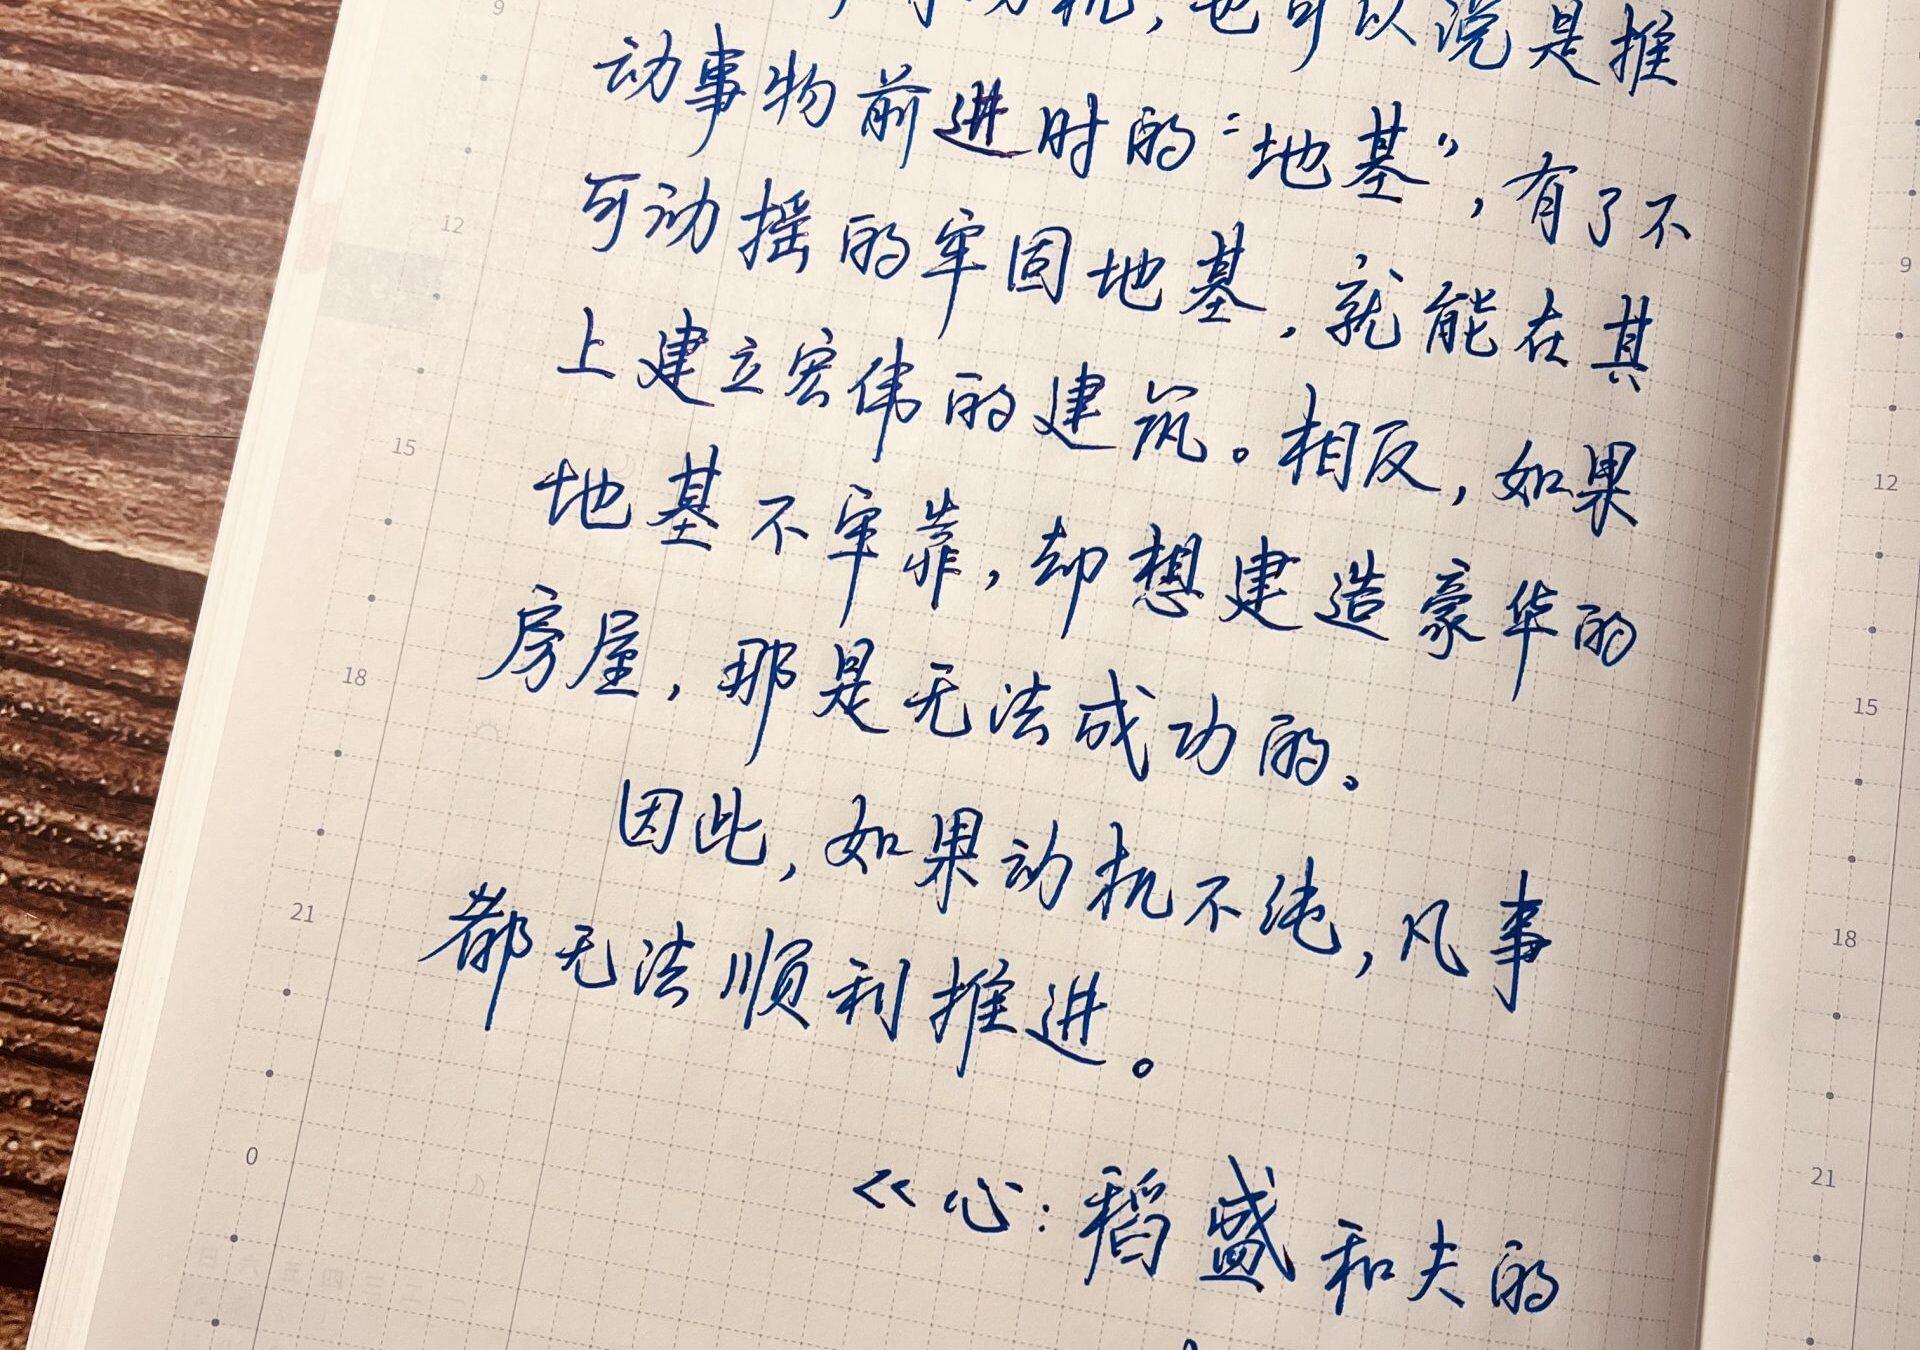 机,也可以说是推
动事物前进时的“地基”,有了不
可动摇的牢固地基,就能在其
上建立宏伟的建筑。相反,如果
地基不牢靠,却想建造豪华的
房屋,那是无法成功的。
因此,如果动机不纯,凡事
都无法顺利推进。
《心:稻盛和夫的
9
12
15
18
21
0
9
12
15
18
21
一二三四五六日